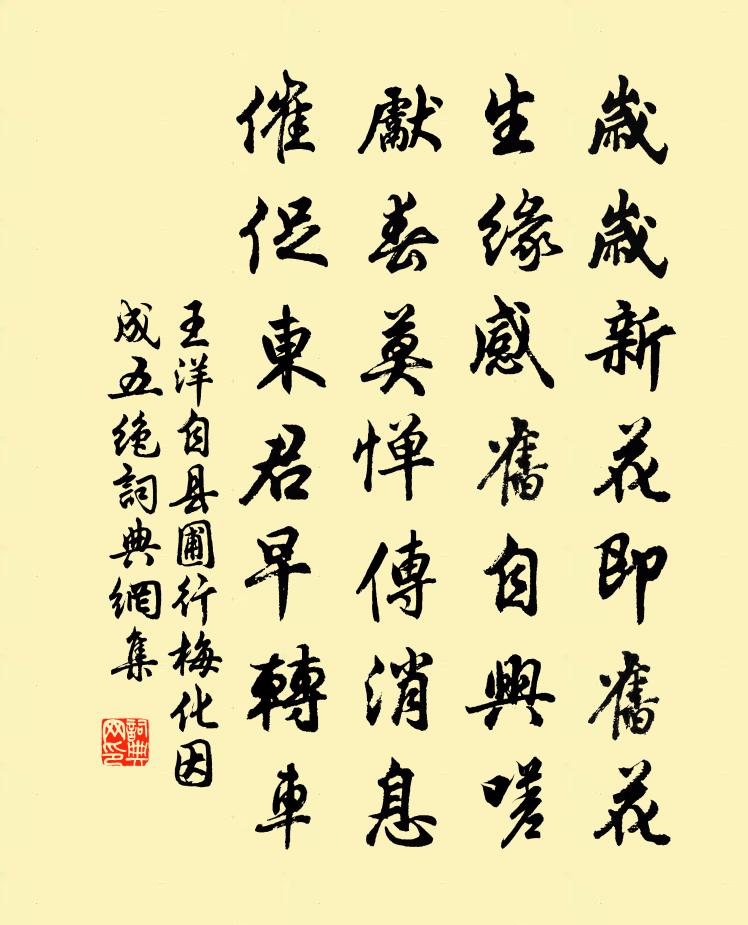 歲歲新花即舊花
生緣感舊自興嗟
獻春莫惮傳消息
催促東君早轉車
王洋自县圃行梅化因
成五绝詞典網集
詞典網印